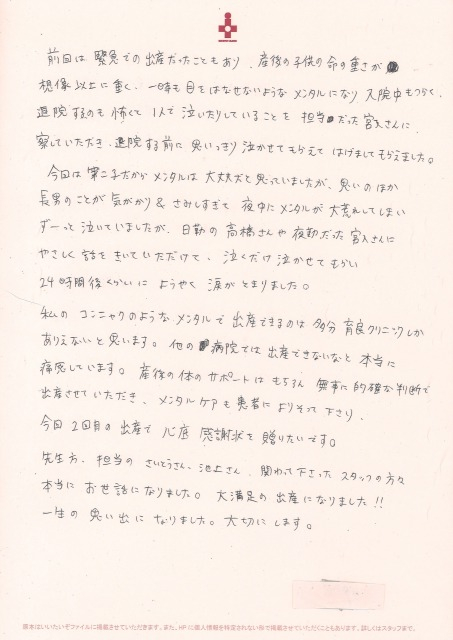 前回は 緊急での出産だったこともあり、産後の子供の命の重さが
想像以上に重く、一時も目をはなせないような メンタルになり 入院中もつらく、
退院するのも 怖くて 1人で 泣いたりしていることを 担当だった 宮入さんに
察していただき、退院する前に 思いっきり 泣かせてもらえて はげましてもらえました。
今回は 第二子だから メンタルは 大丈夫だと思っていましたが、思いのほか
長男のことが 気がかり & さみしすぎて 夜中に メンタルが 大荒れしてしまい
ずーっと 泣いていましたが、日勤の 高橋さんや 夜勤だった 宮入さんに
やさしく 話を きいていただけて、泣くだけ 泣かせてもらい
24時間後くらいに ようやく 涙が とまりました。
私の コンニャクのような メンタルで 出産できるのは 多分 育良クリニックしか
ありえないと 思います。他の 病院では 出産できないなと 本当に
痛感しています。産後の体のサポートは もちろん 無事に 的確な判断で
出産させていただき、メンタルケアも 患者に よりそって 下さり、
今回 2回目の 出産で 心底 感謝状を 贈りたいです。
先生方、担当の さいとうさん、池上さん、関わって 下さった スタッフの方々
本当に お世話になりました。大満足の 出産になりました!!
一生の 思い出に なりました。大切にします。
原本はいいたいぞファイルに掲載させていただきます。また、HPに個人情報を特定されない形で掲載させていただくこともあります。詳しくはスタッフまで。